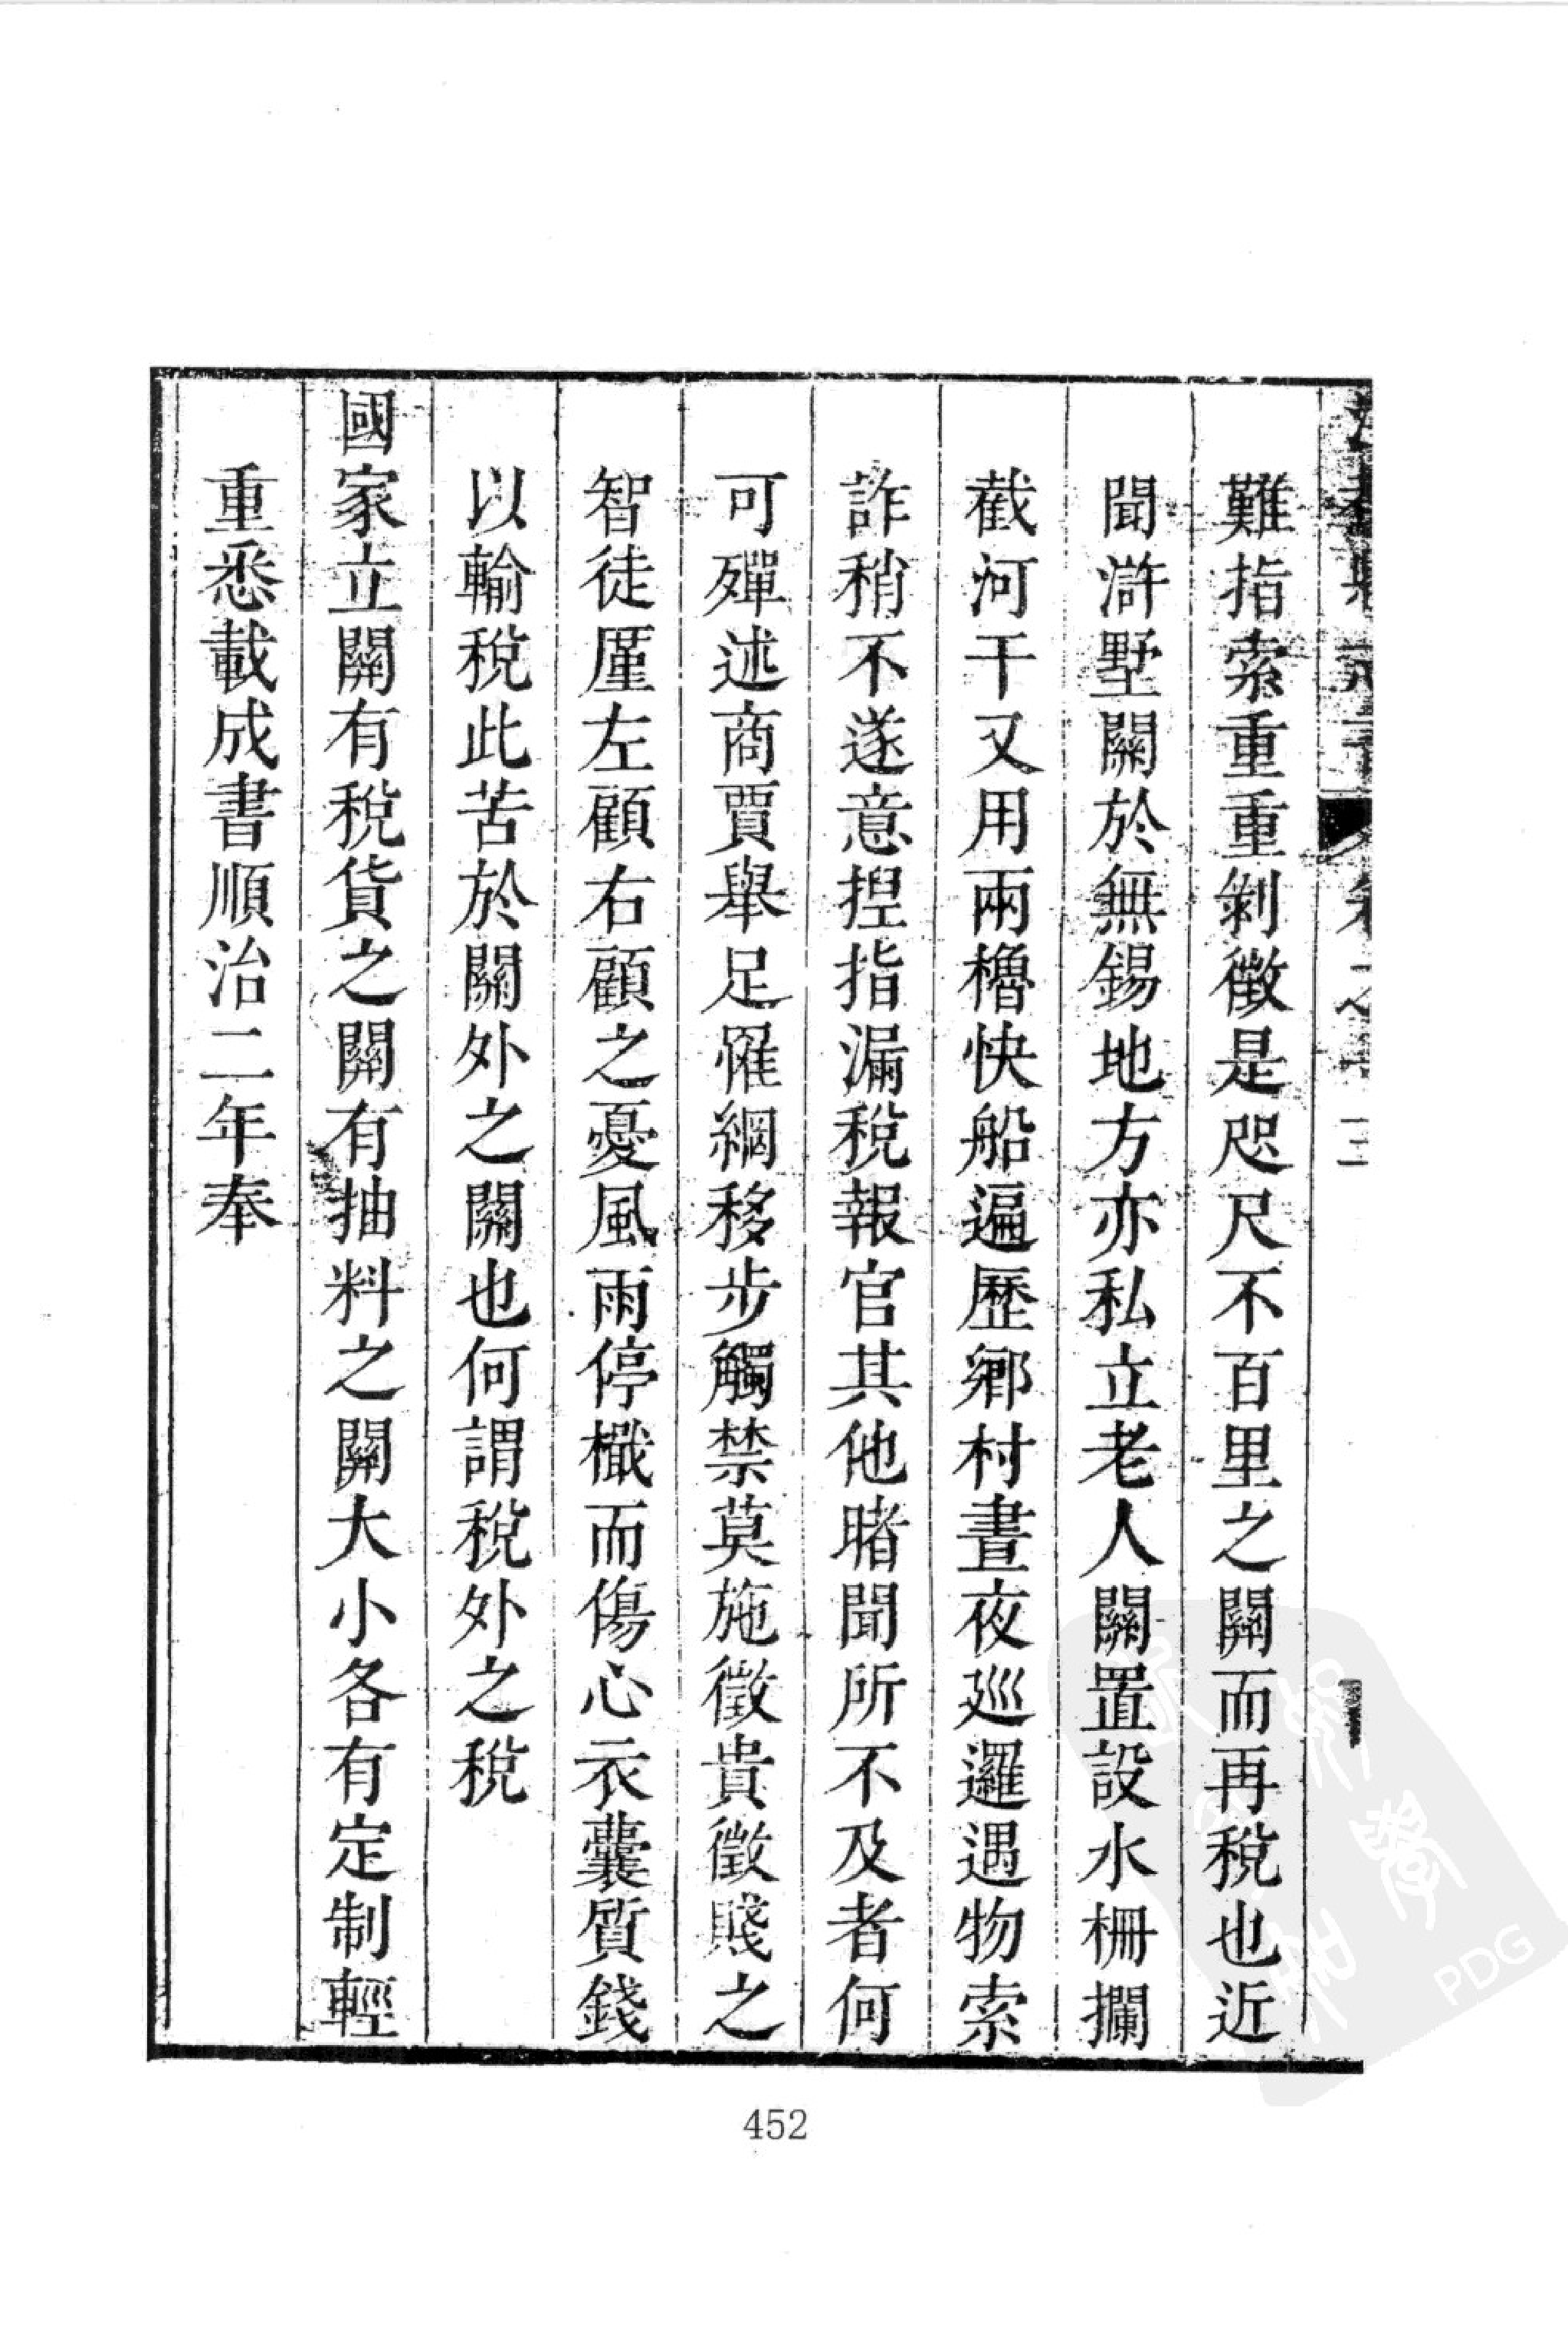 難指索重重剝徵是咫尺不百里之關而再稅也近
聞滸墅關於無錫地方亦私立老人關置設水柵攔
截河干又用兩櫓快船遍歷鄉村晝夜巡邏遇物索
詐稍不遂意揑指漏稅報官其他睹聞所不及者何
可殫述商賈舉足罹網移步觸禁莫施徵貴徵賤之
智徒厪左顧右顧之憂風雨停檝而傷心衣囊質錢
以輸稅此苦於關外之關也何謂稅外之稅
國家立關有稅貨之關有抽料之關大小各有定制輕
重悉載成書順治二年奉
452
PDG